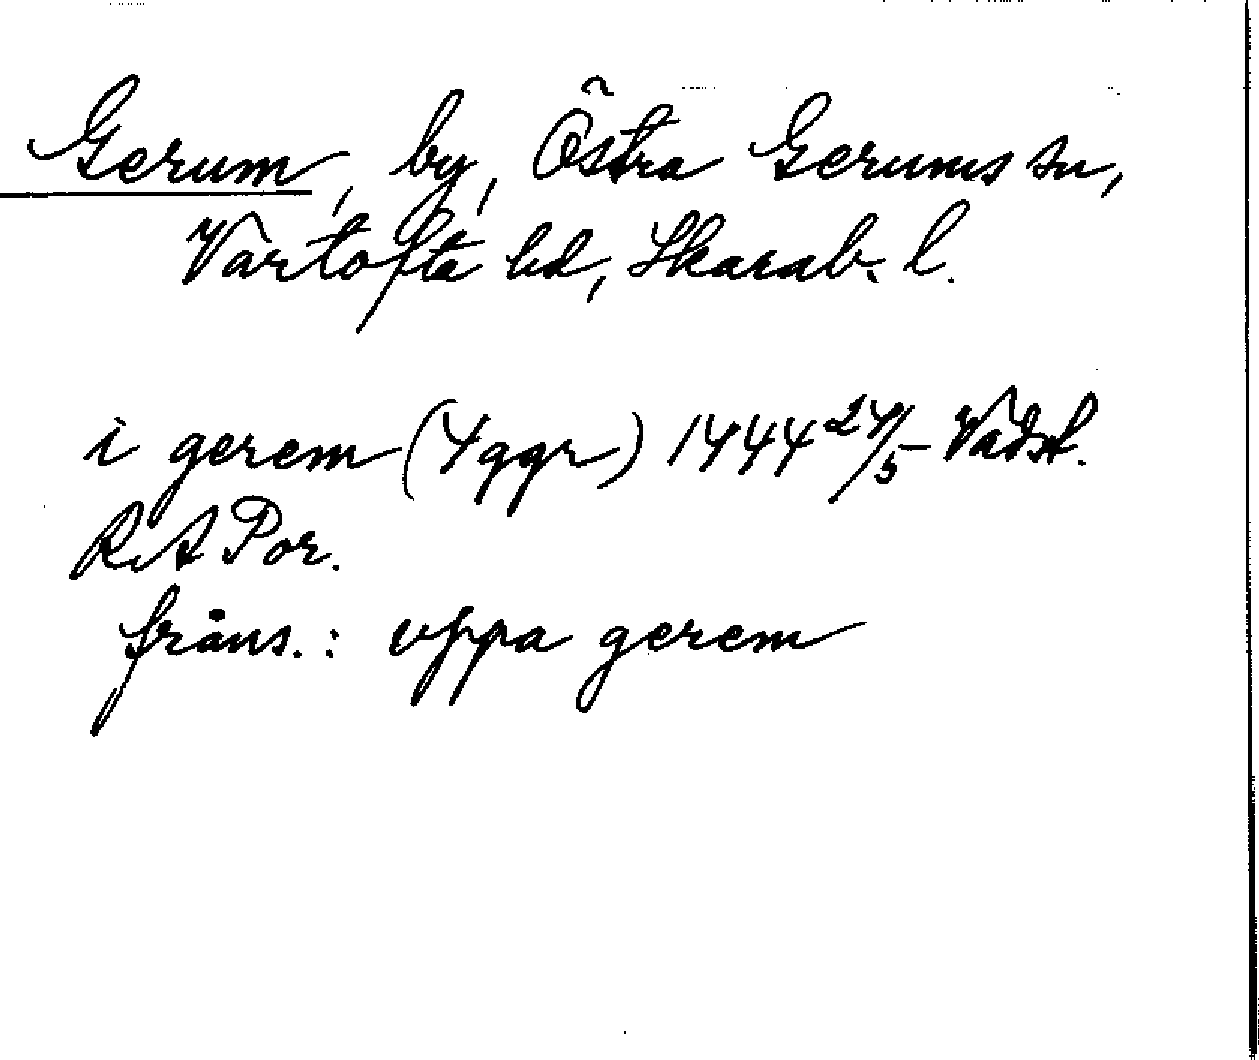 Gerum, by, Östra Gerums sn,
Vartofta hd, Skarab. l.
i gerem (4 ggr) 1444 24/5 Vadst.
RA Por.
fråns.: vppa gerem